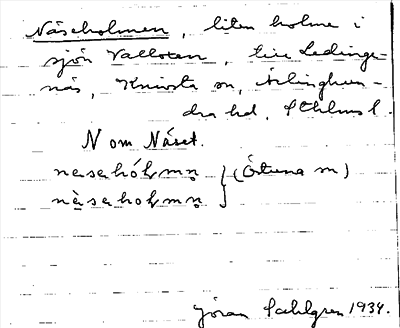 Näseholmen, liten holme i
sjön Valloxen, Eric Ledinge-
näs, Knivsta sn, Ärlinghun-
dra hd, Sthlms l.
N om Näset.
nesehóḷmṇ } (Östuna sn)
nèseholmṇ
Jöran Sahlgren 1934.